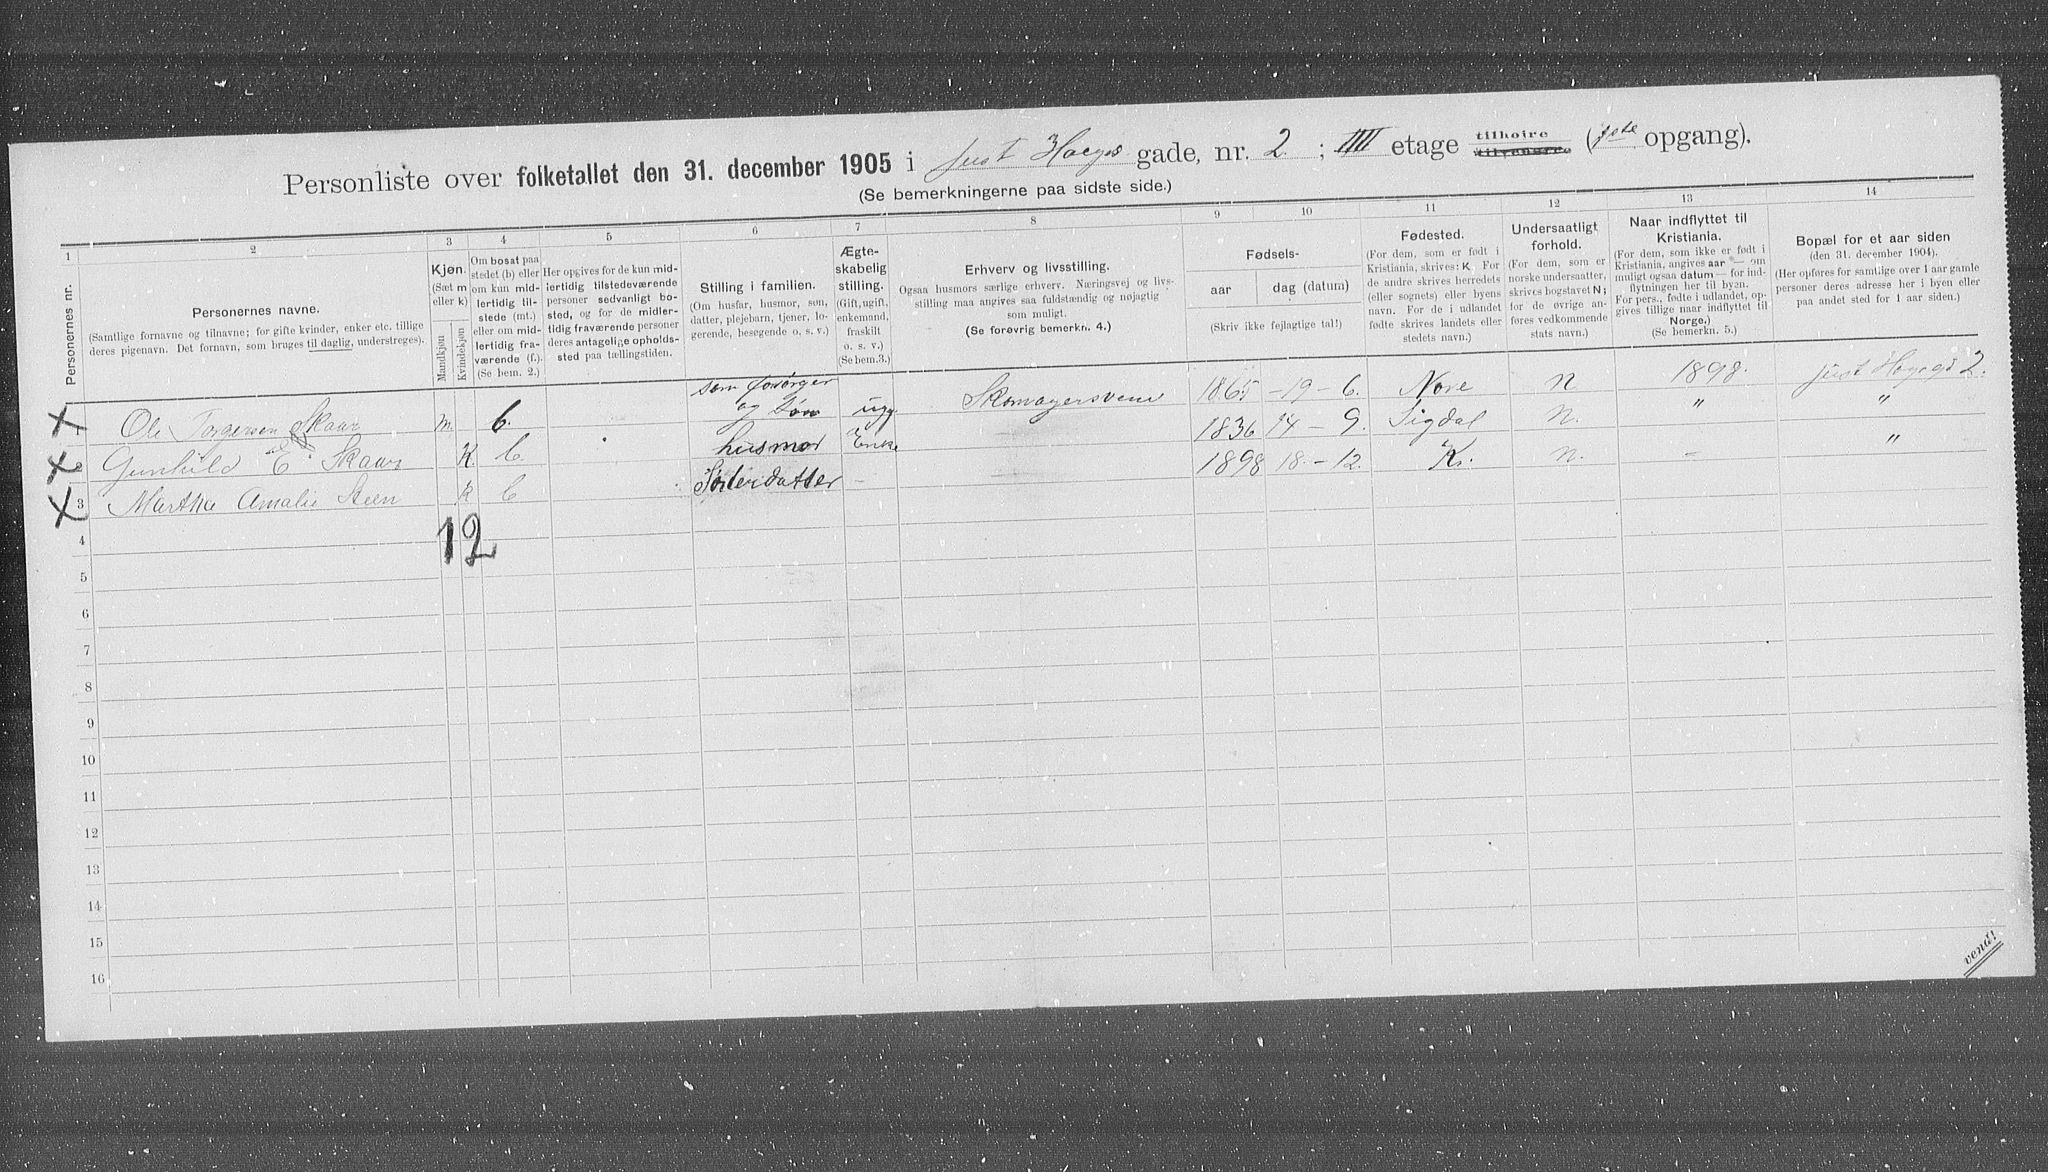 Personliste over folketallet den 31. december 1905 i Just Hoegs gade, nr. 2 ; IIII etage tilhoire tilvenstre (1ste opgang).
(Se bemerkningerne paa sidste side.)
1 2 3 4 5 6 7 8 9 10 11 12 13 14
Personernes nr.
Personernes navne.
(Samtlige fornavne og tilnavne; for gifte kvinder, enker etc. tillige
deres pigenavn. Det fornavn, som bruges til daglig, understreges).
Kjøn.
(Sæt m
eller k)
Mandkjøn
Kvindekjøn
Om bosat paa
stedet (b) eller
om kun mid-
lertidig til-
stede (mt.)
eller om mid-
lertidig fra-
værende (f.).
(Se bem. 2.)
Her opgives for de kun mid-
lertidig tilstedeværende
personer sedvanligt bo-
sted, og for de midler-
tidig fraværende personer
deres antagelige opholds-
sted paa tællingstiden.
Stilling i familien.
(Om husfar, husmor, søn,
datter, plejebarn, tjener, lo-
gerende, besøgende o. s. v.)
Ægte-
skabelig
stilling.
(Gift, ugift,
enkemand,
fraskilt
o. s. v.)
(Se bem.3.)
Erhverv og livsstilling.
Ogsaa husmors særlige erhverv. Næringsvej og livs-
stilling maa angives saa fuldstændig og nøjagtig
som muligt.
(Se forøvrig bemerkn. 4.)
Fødsels-
aar dag (datum)
(Skriv ikke fejlagtige tal!)
Fødested.
(For dem, som er født i
Kristiania, skrives: K. For
de andre skrives herredets
(eller sognets) eller byens
navn. For de i udlandet
fødte skrives landets eller
stedets navn.)
Undersaatligt
forhold.
(For dem, som er
norske undersaatter,
skrives bogstavet N;
for de øvrige an-
føres vedkommende
stats navn.)
Naar indflyttet til
Kristiania.
(For dem, som ikke er født i
Kristiania, angives aar — om
muligt ogsaa datum — for ind-
flytningen her til byen.
For pers., fødte i udlandet, op-
gives tillige naar indflyttet til
Norge.)
(Se bemerkn. 5.)
Bopæl for et aar siden
(den 31. december 1904).
(Her opføres for samtlige over 1 aar gamle
personer deres adresse her i byen eller
paa andet sted for 1 aar siden.)
X 1 Ole Torgersen Skaar m. b. som forsørger og Søn ug. Skomagersvend 1865 – 19 – 6. Nore n 1898. Just Hoegsg 2.
X 2 Gunhild E. Skaar K. b. husmor Enke 1836 14 – 9. Sigdal n. " "
X 3 Martha Amalie Steen k b Søsterdatter – 1898 18. – 12. K. n. – "
12
4
5
6
7
8
9
10
11
12
13
14
15
16
vend!